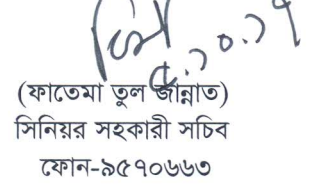 ৫.১০.১৭
(ফাতেমা তুল জান্নাত)
সিনিয়র সহকারী সচিব
ফোন-৯৫৭০৬৬৩